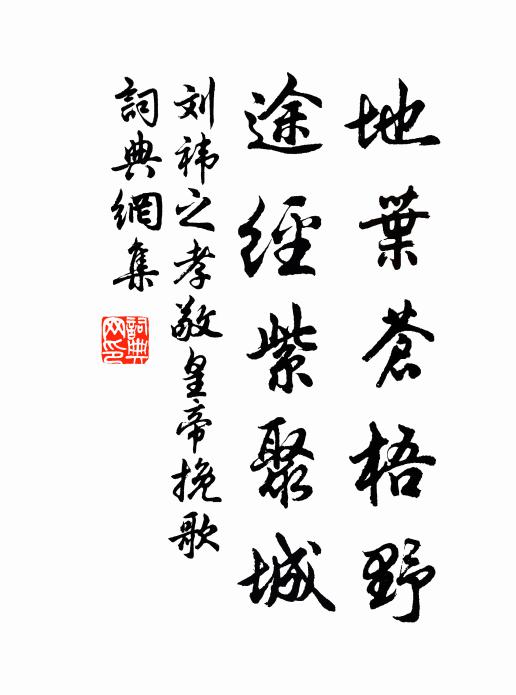 地葉蒼梧野
途經紫聚城
刘祎之孝敬皇帝挽歌
詞典網集
詞典
网印